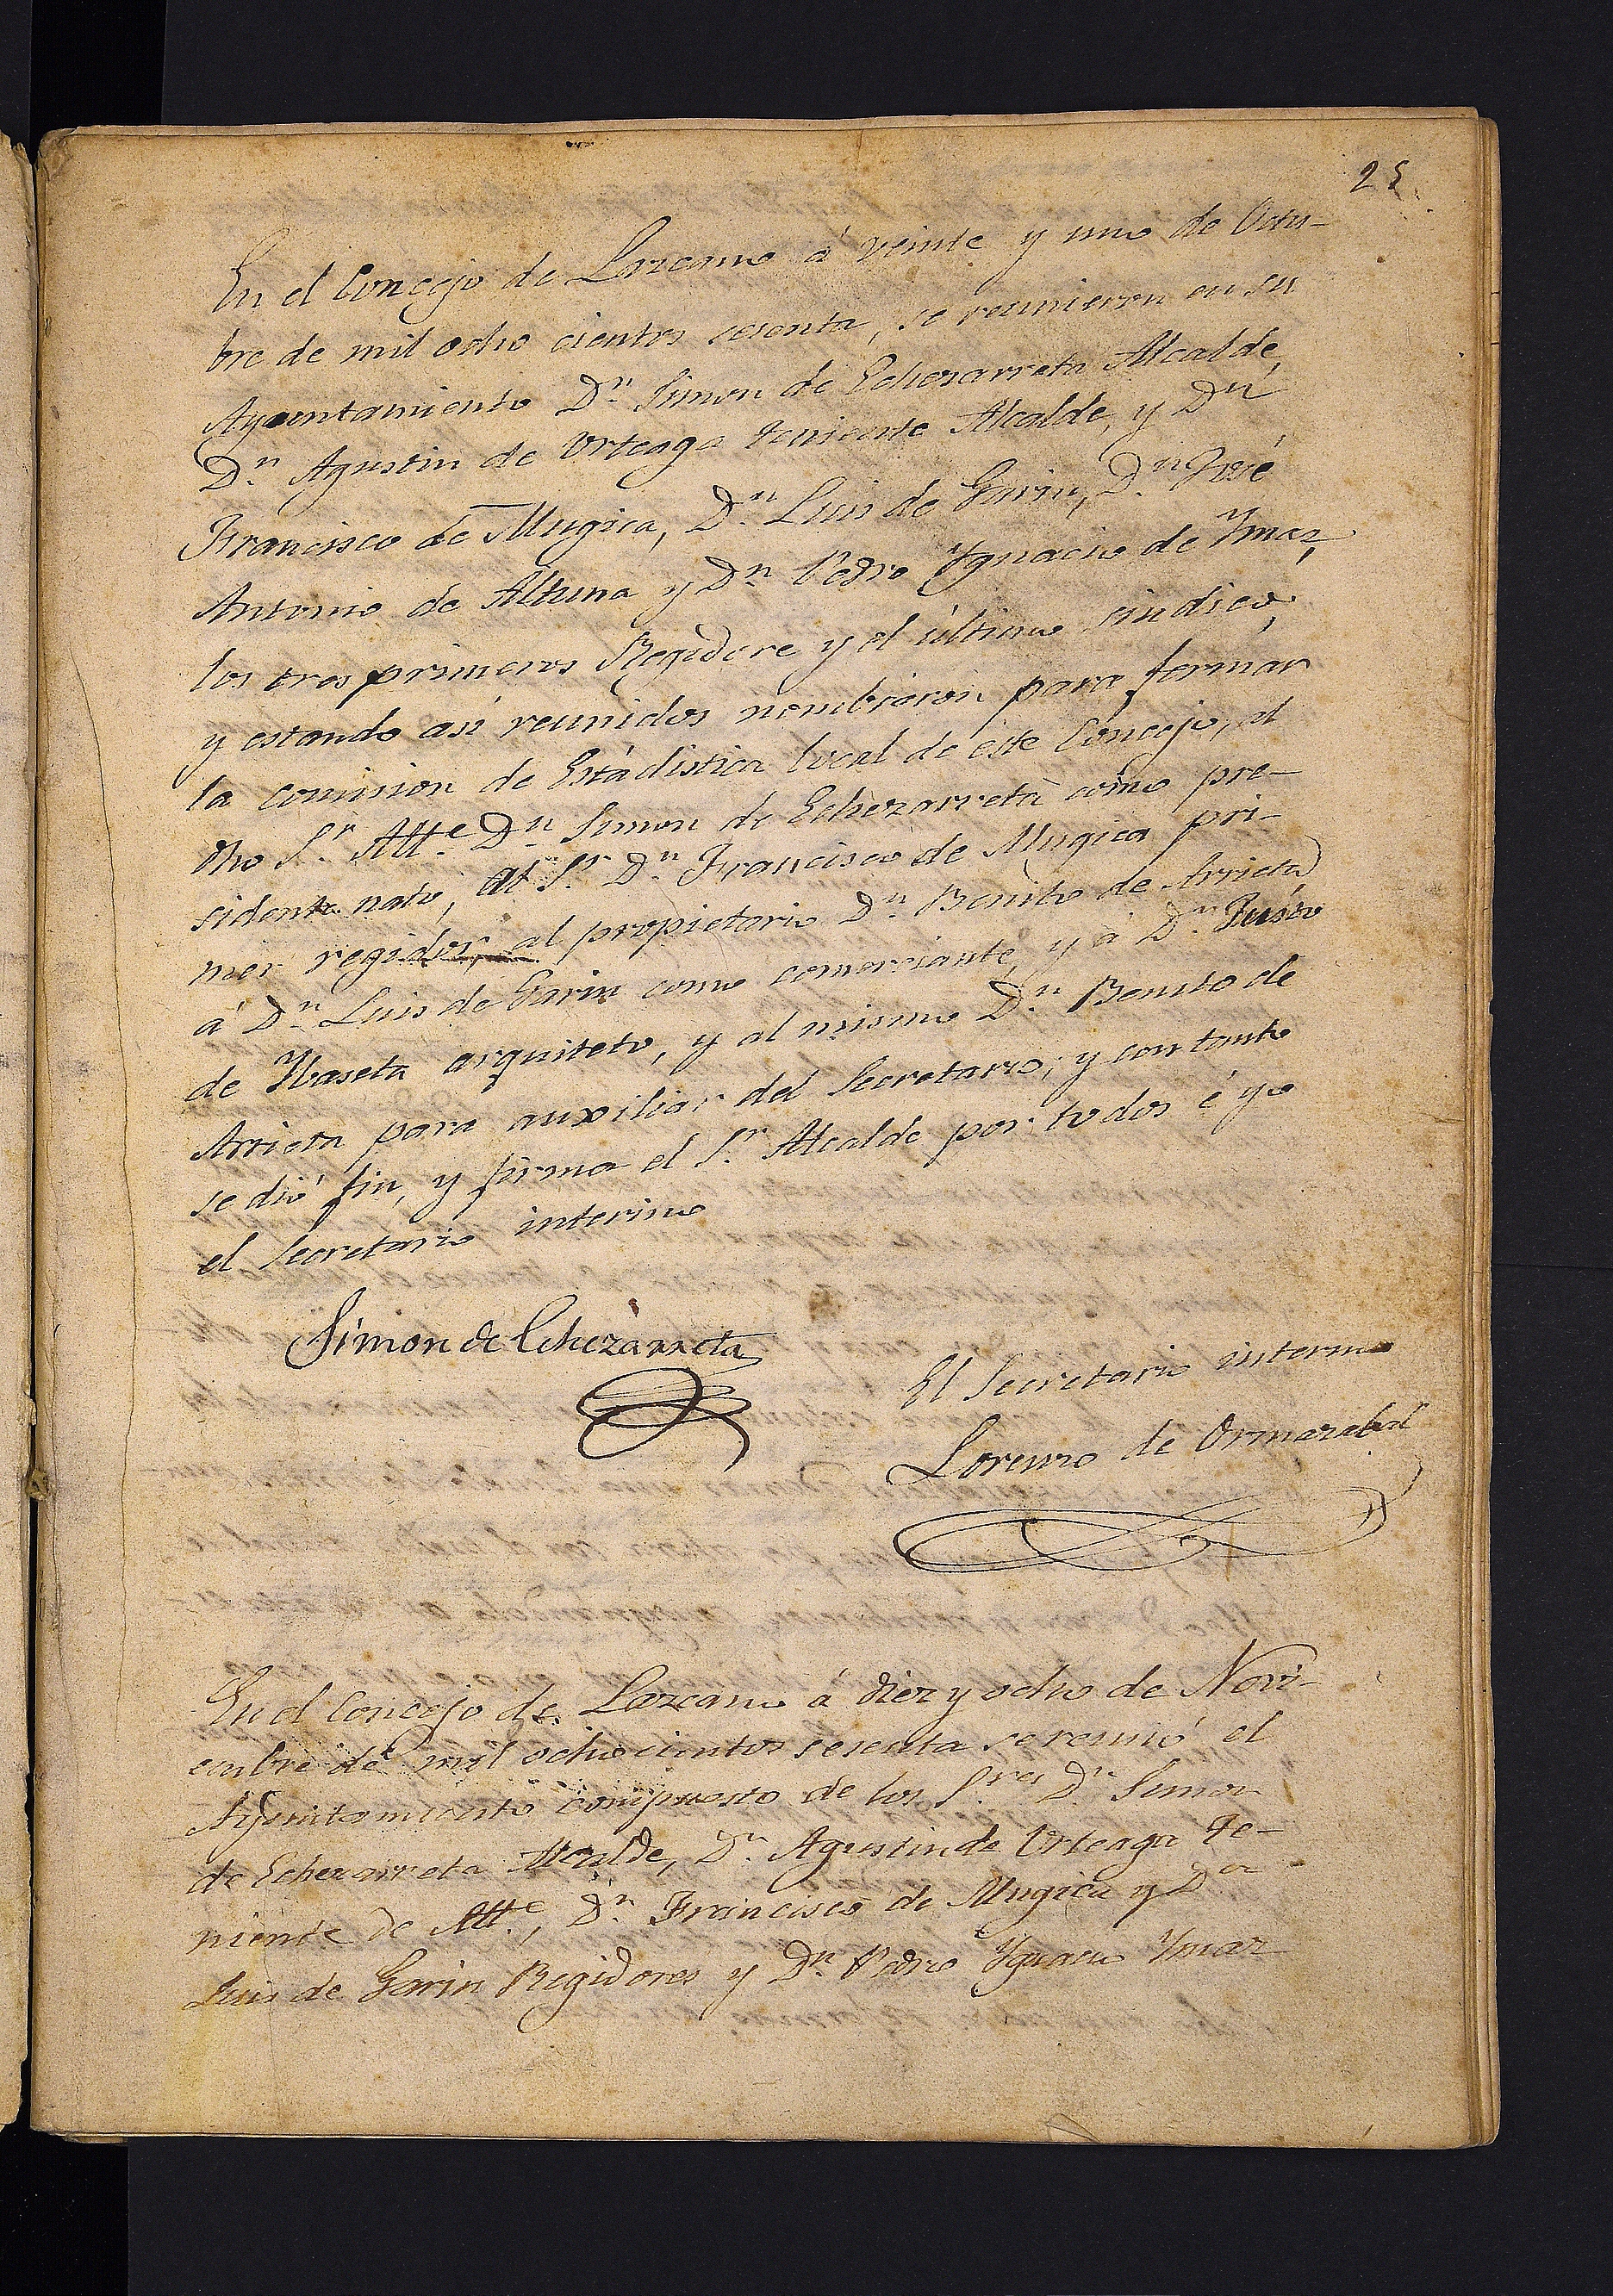 25
En el Concejo de Lazcano á veinte y uno de Octu-
bre de mil ocho cientos sesenta, se reunieron en su
Ayuntamiento Dn. Simon de Echezarreta Alcalde,
Dn. Agustin de Urteaga teniente Alcalde, y Dn.
Francisco de Mugica, Dn. Luis de Garin, Dn. José
Antonio de Altuna y Dn. Pedro Ygnacio de Ymaz,
los tres primeros Regidore y el último sindico,
y estando asi reunidos nombraron para formar
la comision de Estadistica local de este Concejo, al
dho Sr. Alle. Dn. Simon de Echezarreta como pre-
sidente nato, al Sr. Dn. Francisco de Mugica pri-
mer regidor, al propietario Dn. Benito de Arrieta
á Dn. Luis de Garin como comerciante, y á Dn. Justo
de Ybaseta arquiteto, y al mismo Dn. Benito de
Arrieta para auxiliar del Secretario; y con tanto
se dió fin, y firma el Sr. Alcalde por todos é yo
el Secretario interino
Simon de Echezarreta
El Secretario interino
Lorenzo de Ormazabal
En el Concejo de Lazcano á diez y ocho de Novi-
embre de mil ochocientos sesenta se reunió el
Ayuntamiento compuesto de los Sres. Dn. Simon
de Echezarreta Alcalde, Dn. Agustin de Urteaga Te-
niente de Alle., Dn. Francisco de Mugica y Dn.
Luis de Garin Regidores y Dn. Pedro Ygnacio Ymaz